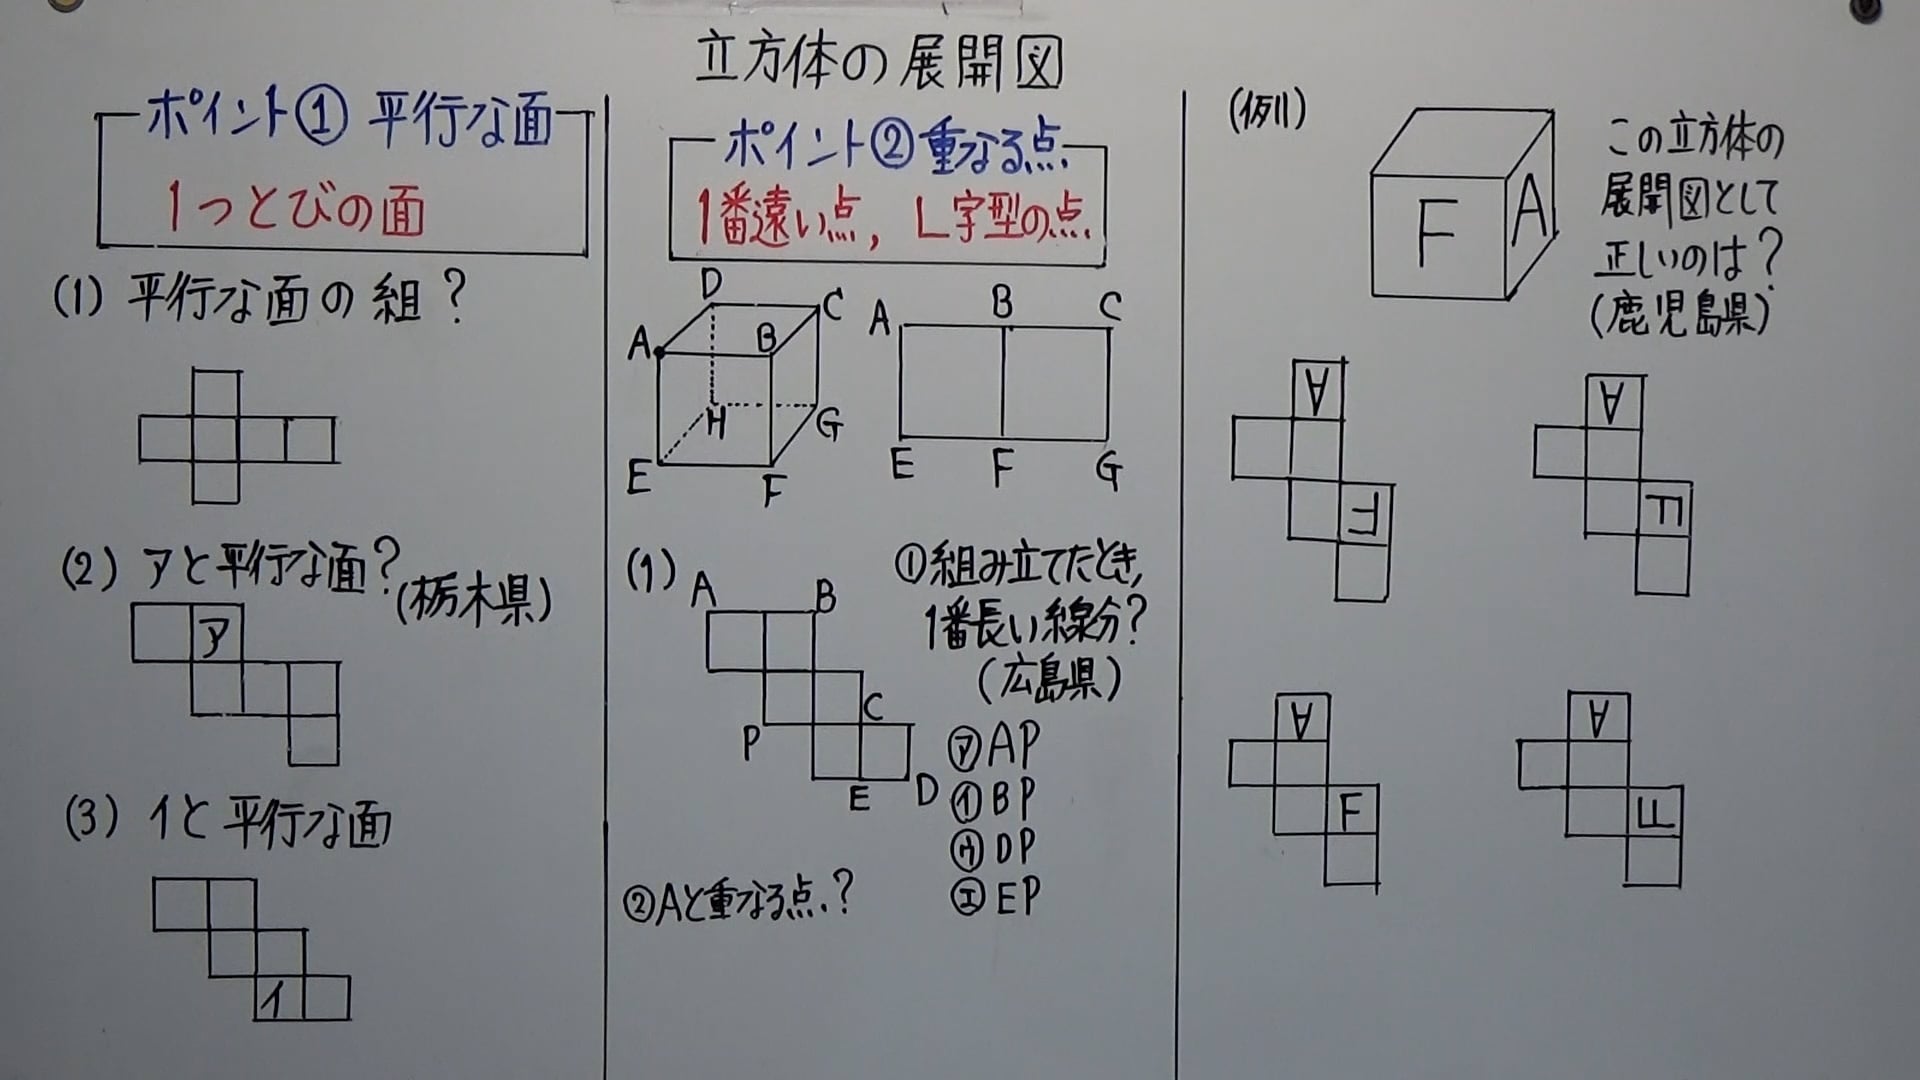 立方体の展開図
ポイント① 平行な面
1つとびの面
(1) 平行な面の組?
(2) アと平行な面?
(栃木県)
ア
(3) イと平行な面
イ
ポイント②重なる点
1番遠い点, L字型の点
D
C
A
B
H
G
E
F
A
B
C
E
F
G
(1)
A
B
C
P
E
D
①組み立てたとき,
1番長い線分?
(広島県)
㋐AP
㋑BP
㋒DP
㋓EP
②Aと重なる点.?
(例)
F
A
この立方体の
展開図として
正しいのは?
(鹿児島県)
A
F
A
F
A
F
A
F